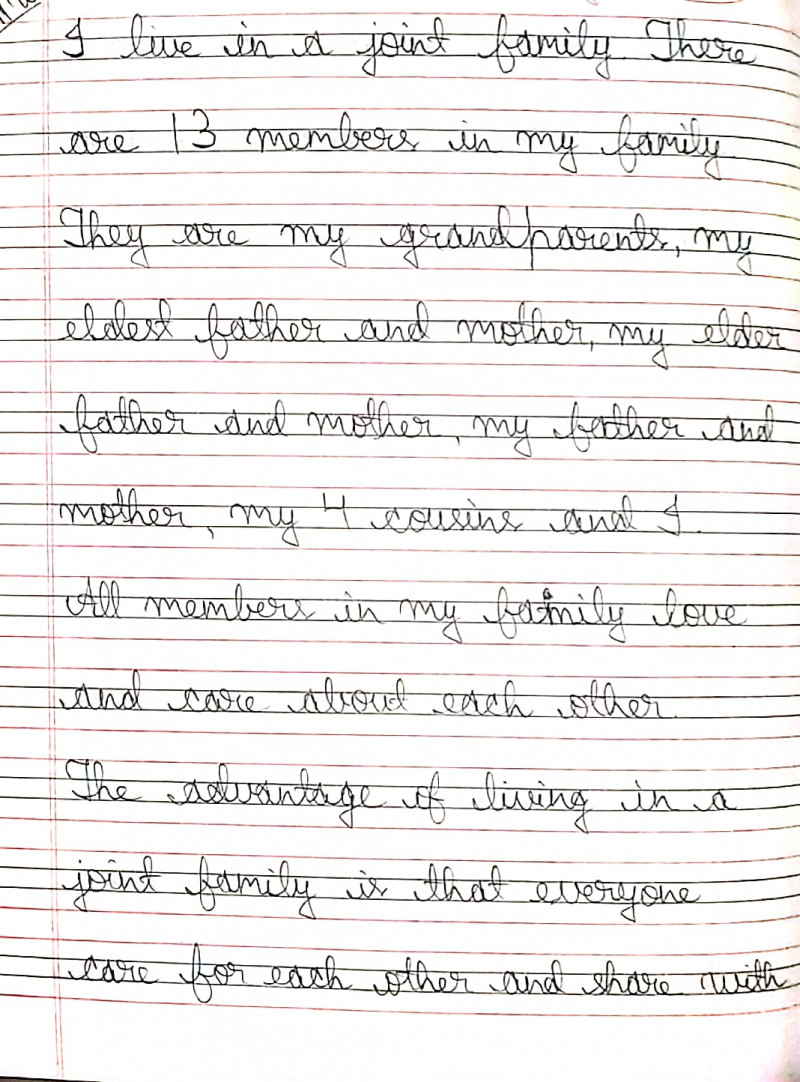 I live in a joint family. There
are 13 members in my family
They are my grandparents, my
eldest father and mother, my elder
father and mother, my father and
mother, my 4 cousins and I.
All members in my family love
and care about each other.
The advantage of living in a
joint family is that everyone
care for each other and share with